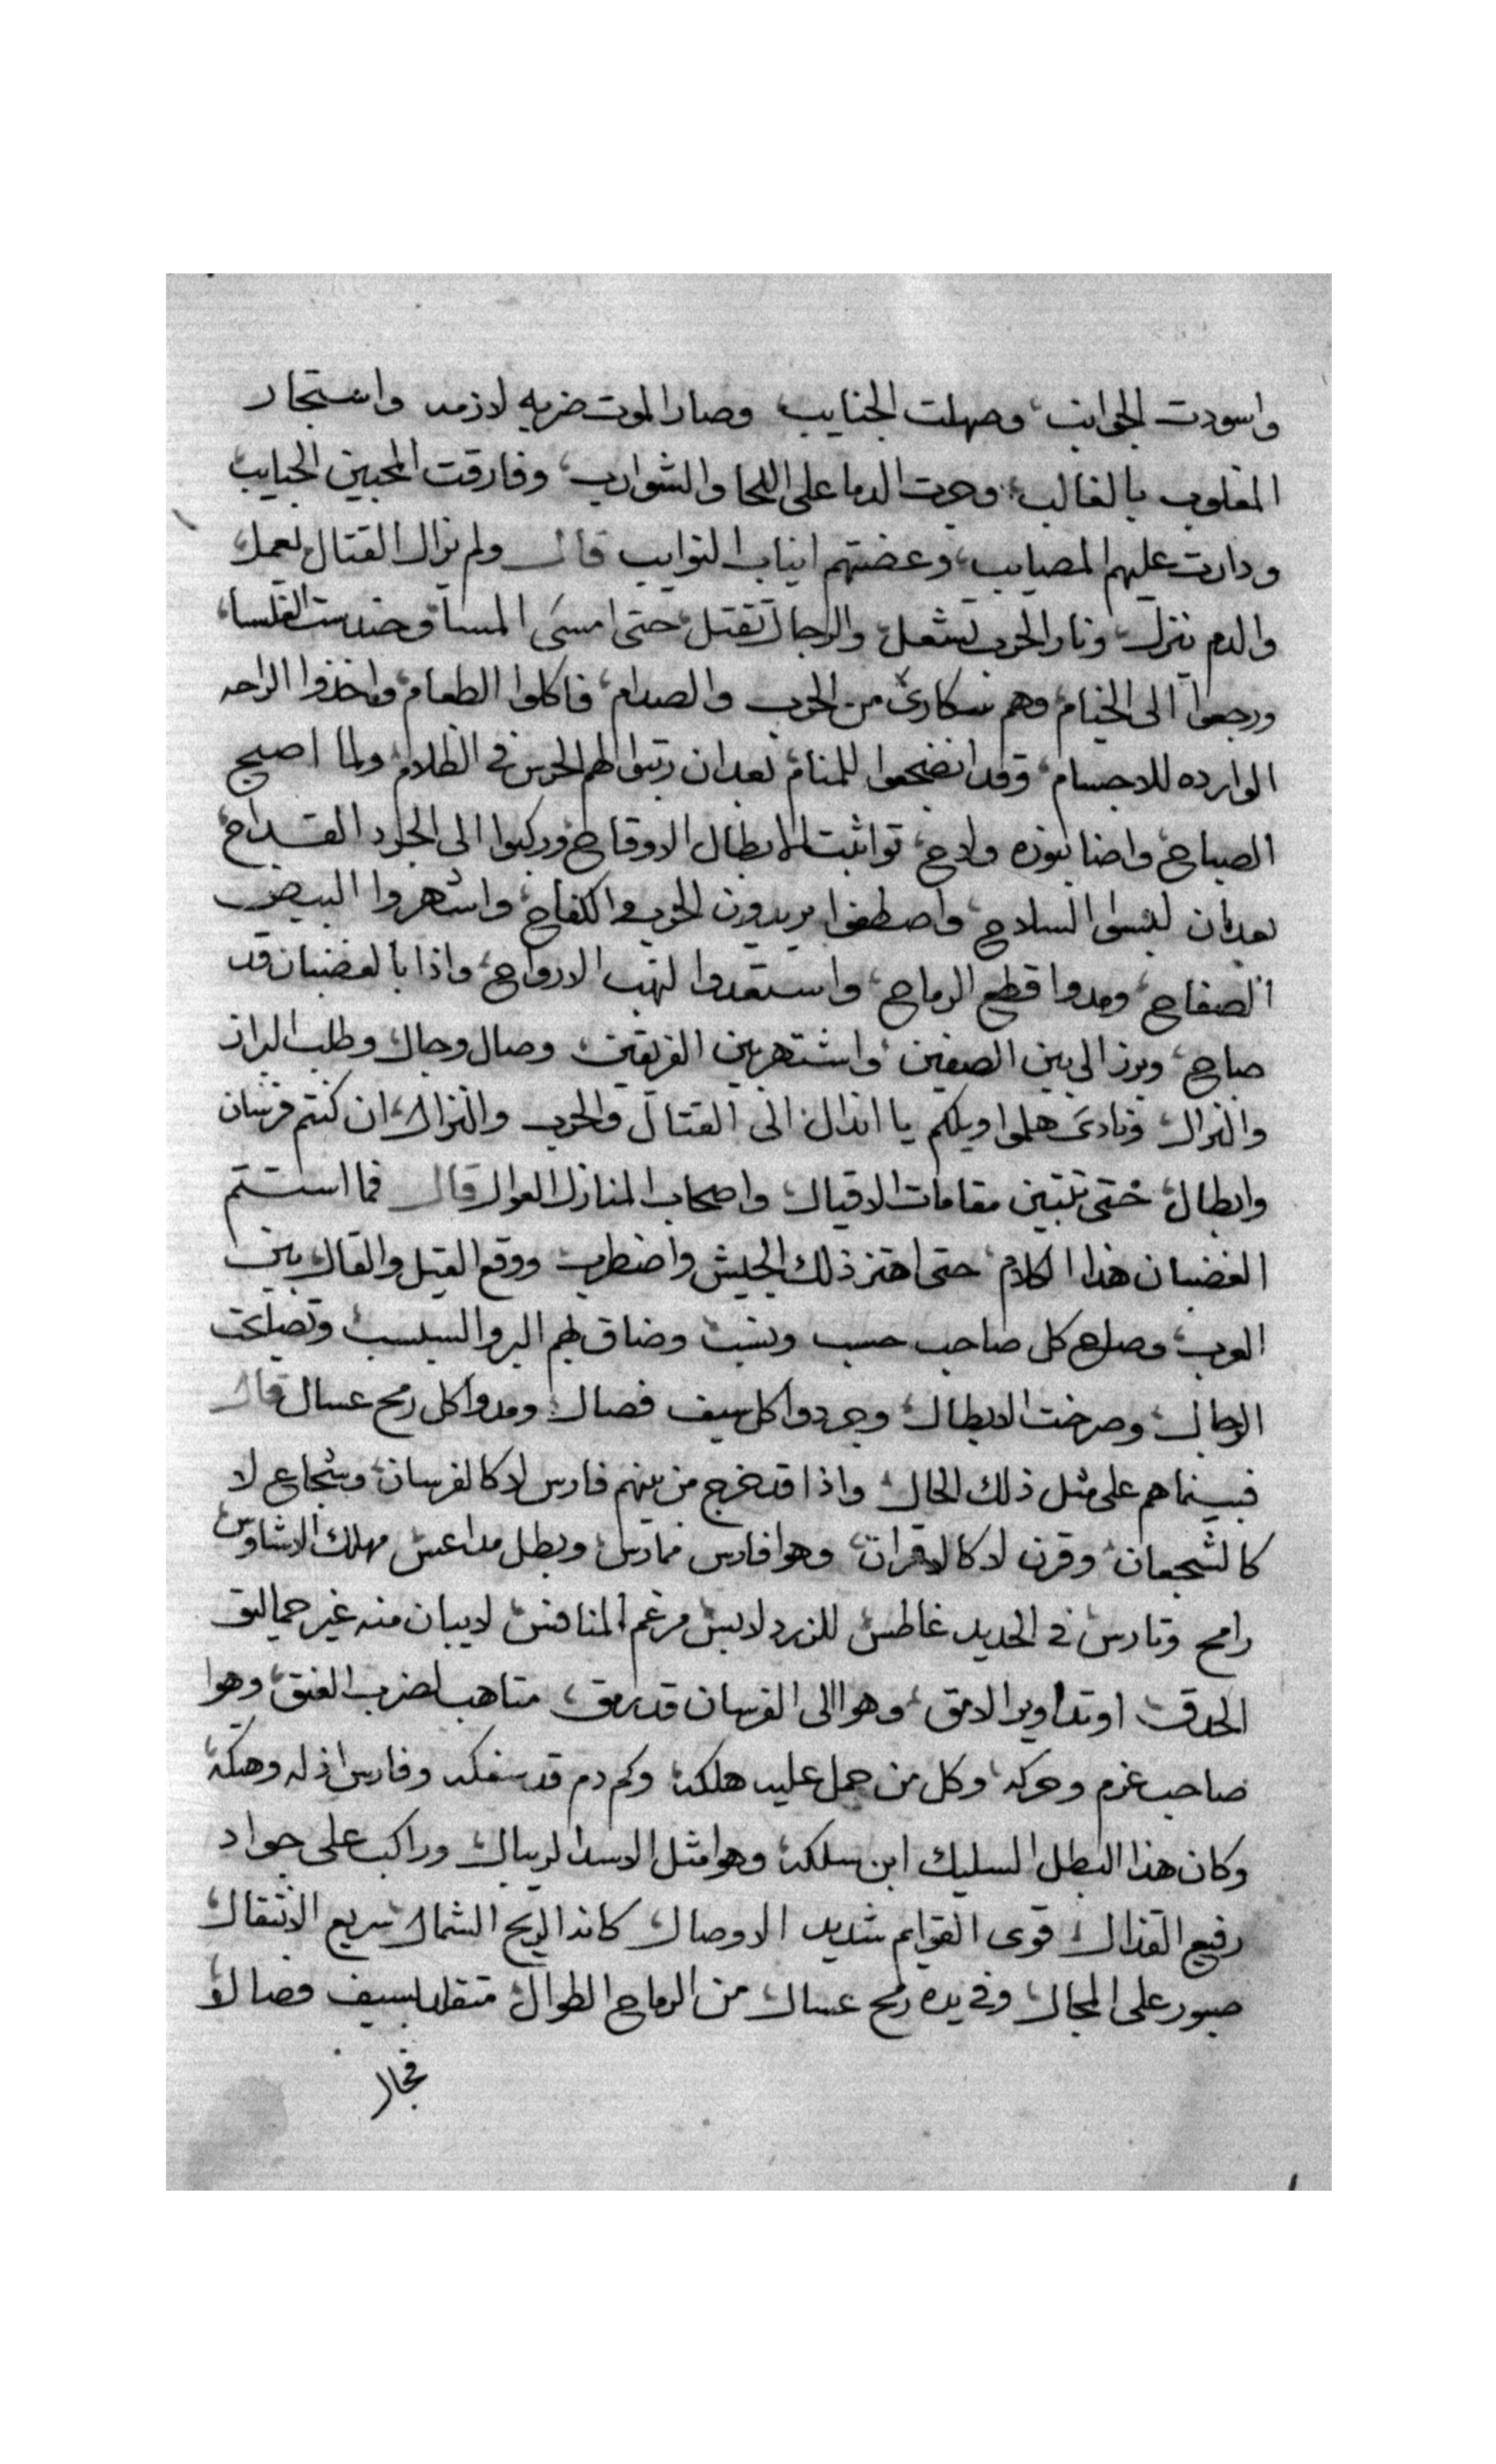 واسودت الجوانب، وصهلت الجنايب وصار الموت ضربه لازمه واستجار
المغلوب بالغالب، وجرت الدما على اللحا والشوارب، وفارقت المحبين الحبايب
ودارت عليهم المصايب، وعضتهم انياب النوايب قال ولم يزال القتال يعمل،
والدم ينزل، ونار الحرب تشعل، والرجال تقتل، حتى امسى المسا
ورجعوا الى الخيام، وهم سكارى من الحرب والصدام، فاكلوا الطعام، واخذوا الراحه
الوارده للاجسام، وقد انضجعوا للمنام، بعد ان رتبوا لهم الحرس في الظلام، ولما اصبح
الصباح، واضا بنوره ولاح، تواثبت الابطال الاوقاح، وركبوا الى الجرد القداح،
بعد ان لبسوا السلاح، واصطفوا يريدون الحرب والكفاح، واشهروا البيض
الصفاح، ومدوا قطع الرماح، واستعدوا لنهب الارواح، واذا بالغضبان قد
صاح، وبرز الى بين الصفين، واشتهر بين الفريقين، وصال وجال، وطلب البراز
والنزال، ونادى هلموا ويلكم يا اندال، الى القتال والحرب والنزال، ان كنتم فرسان
وابطال، حتى تتبين مقامات الاقيال، واصحاب المنازل العوال قال فما استتم
الغضبان هذا الكلام، حتى اهتز ذلك الجيش واضطرب، ووقع القيل والقال بين
العرب، وصاح كل صاحب حسب ونسب، وضاق بهم البر والسبسب، وتصايحت
الرجال، وصرخت الابطال، وجردوا كل سيف فصال، ومدوا كل رمح عسال قال
فبينما هم على مثل ذلك الحال، واذا قد خرج من بينهم فارس لا كالفرسان، وشجاع لا
كالشجعان، وقرن لا كالاقران، وهوا فارس ممارس، وبطل مداعس، مهلك الاشاوس
رامح وتارس، في الحديد غاطس، للزرد لابس، مرغم المنافس، لا يبان منه غير حماليق
الحدق، او تداوير الامق، وهوا الى الفرسان قد رمق، متاهب لضرب العنق، وهوا
صاحب عزم وحركه، وكل من حمل عليه هلكه، وكم دم قد سفكه وفارس اذله وهتكه،
وكان هذا البطل السليك ابن سلكه، وهوا مثل الاسد الريبال، وراكب على جواد
رفيع القذال، قوى القوايم شديد الاوصال، كانه الريح الشمال، سريع الانتقال،
صبور على المجال، وفي يده رمح عسال، من الرماح الطوال، متقلد بسيف فصال،
فجال